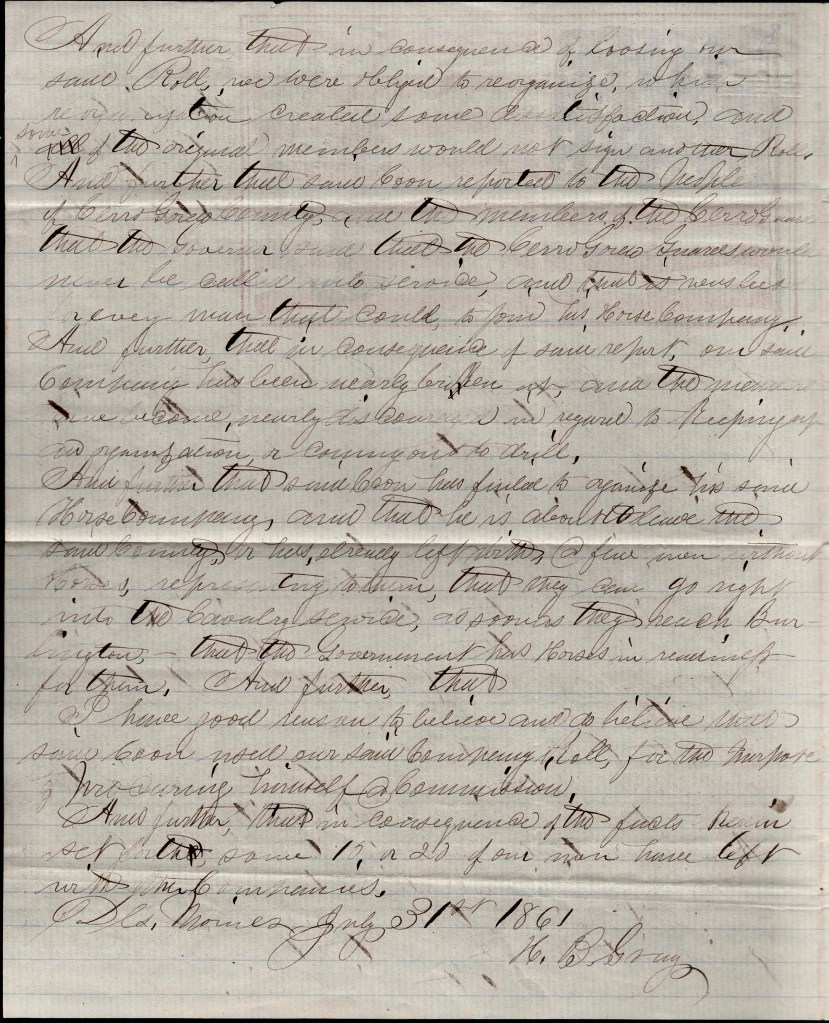 And further, that in consequence of loosing our
said Roll, we were obliged to reorganize, which
reorganization created some dissatisfaction, and
some
of the original members would not sign another Roll.
And further that said Coon reported to the People
of Cerro Gordo County, and the members of the Cerro Gordo
that the Governor said that the Cerro Gordo Guards would
never be called into service, and that is was best
for every man that could, to join his Horse Company.
And further, that in consequence of said report, our said
Company has been nearly broken up, and the members
have become, nearly discouraged in regard to Keeping up
an organization, or coming out to drill.
And further that said Coon has failed to organize his said
Horse Company, and that he is about to leave the
said County, or has, already left with, a few men without
Horses, representing to them, that they can go right
into the Cavalry service, as soon as they reach Bur-
lington, – that the Government has Horses in readiness
for them. And further, that
I have good reason to believe and do believe that
said Coon used our said Company Roll, for the Purpose
of procuring himself a Commission.
And further, that in consequence of the facts herein
set forth, some 15, or 20 of our men have left
with other Companies.
Des Moines July 31st 1861
H. B. Gray